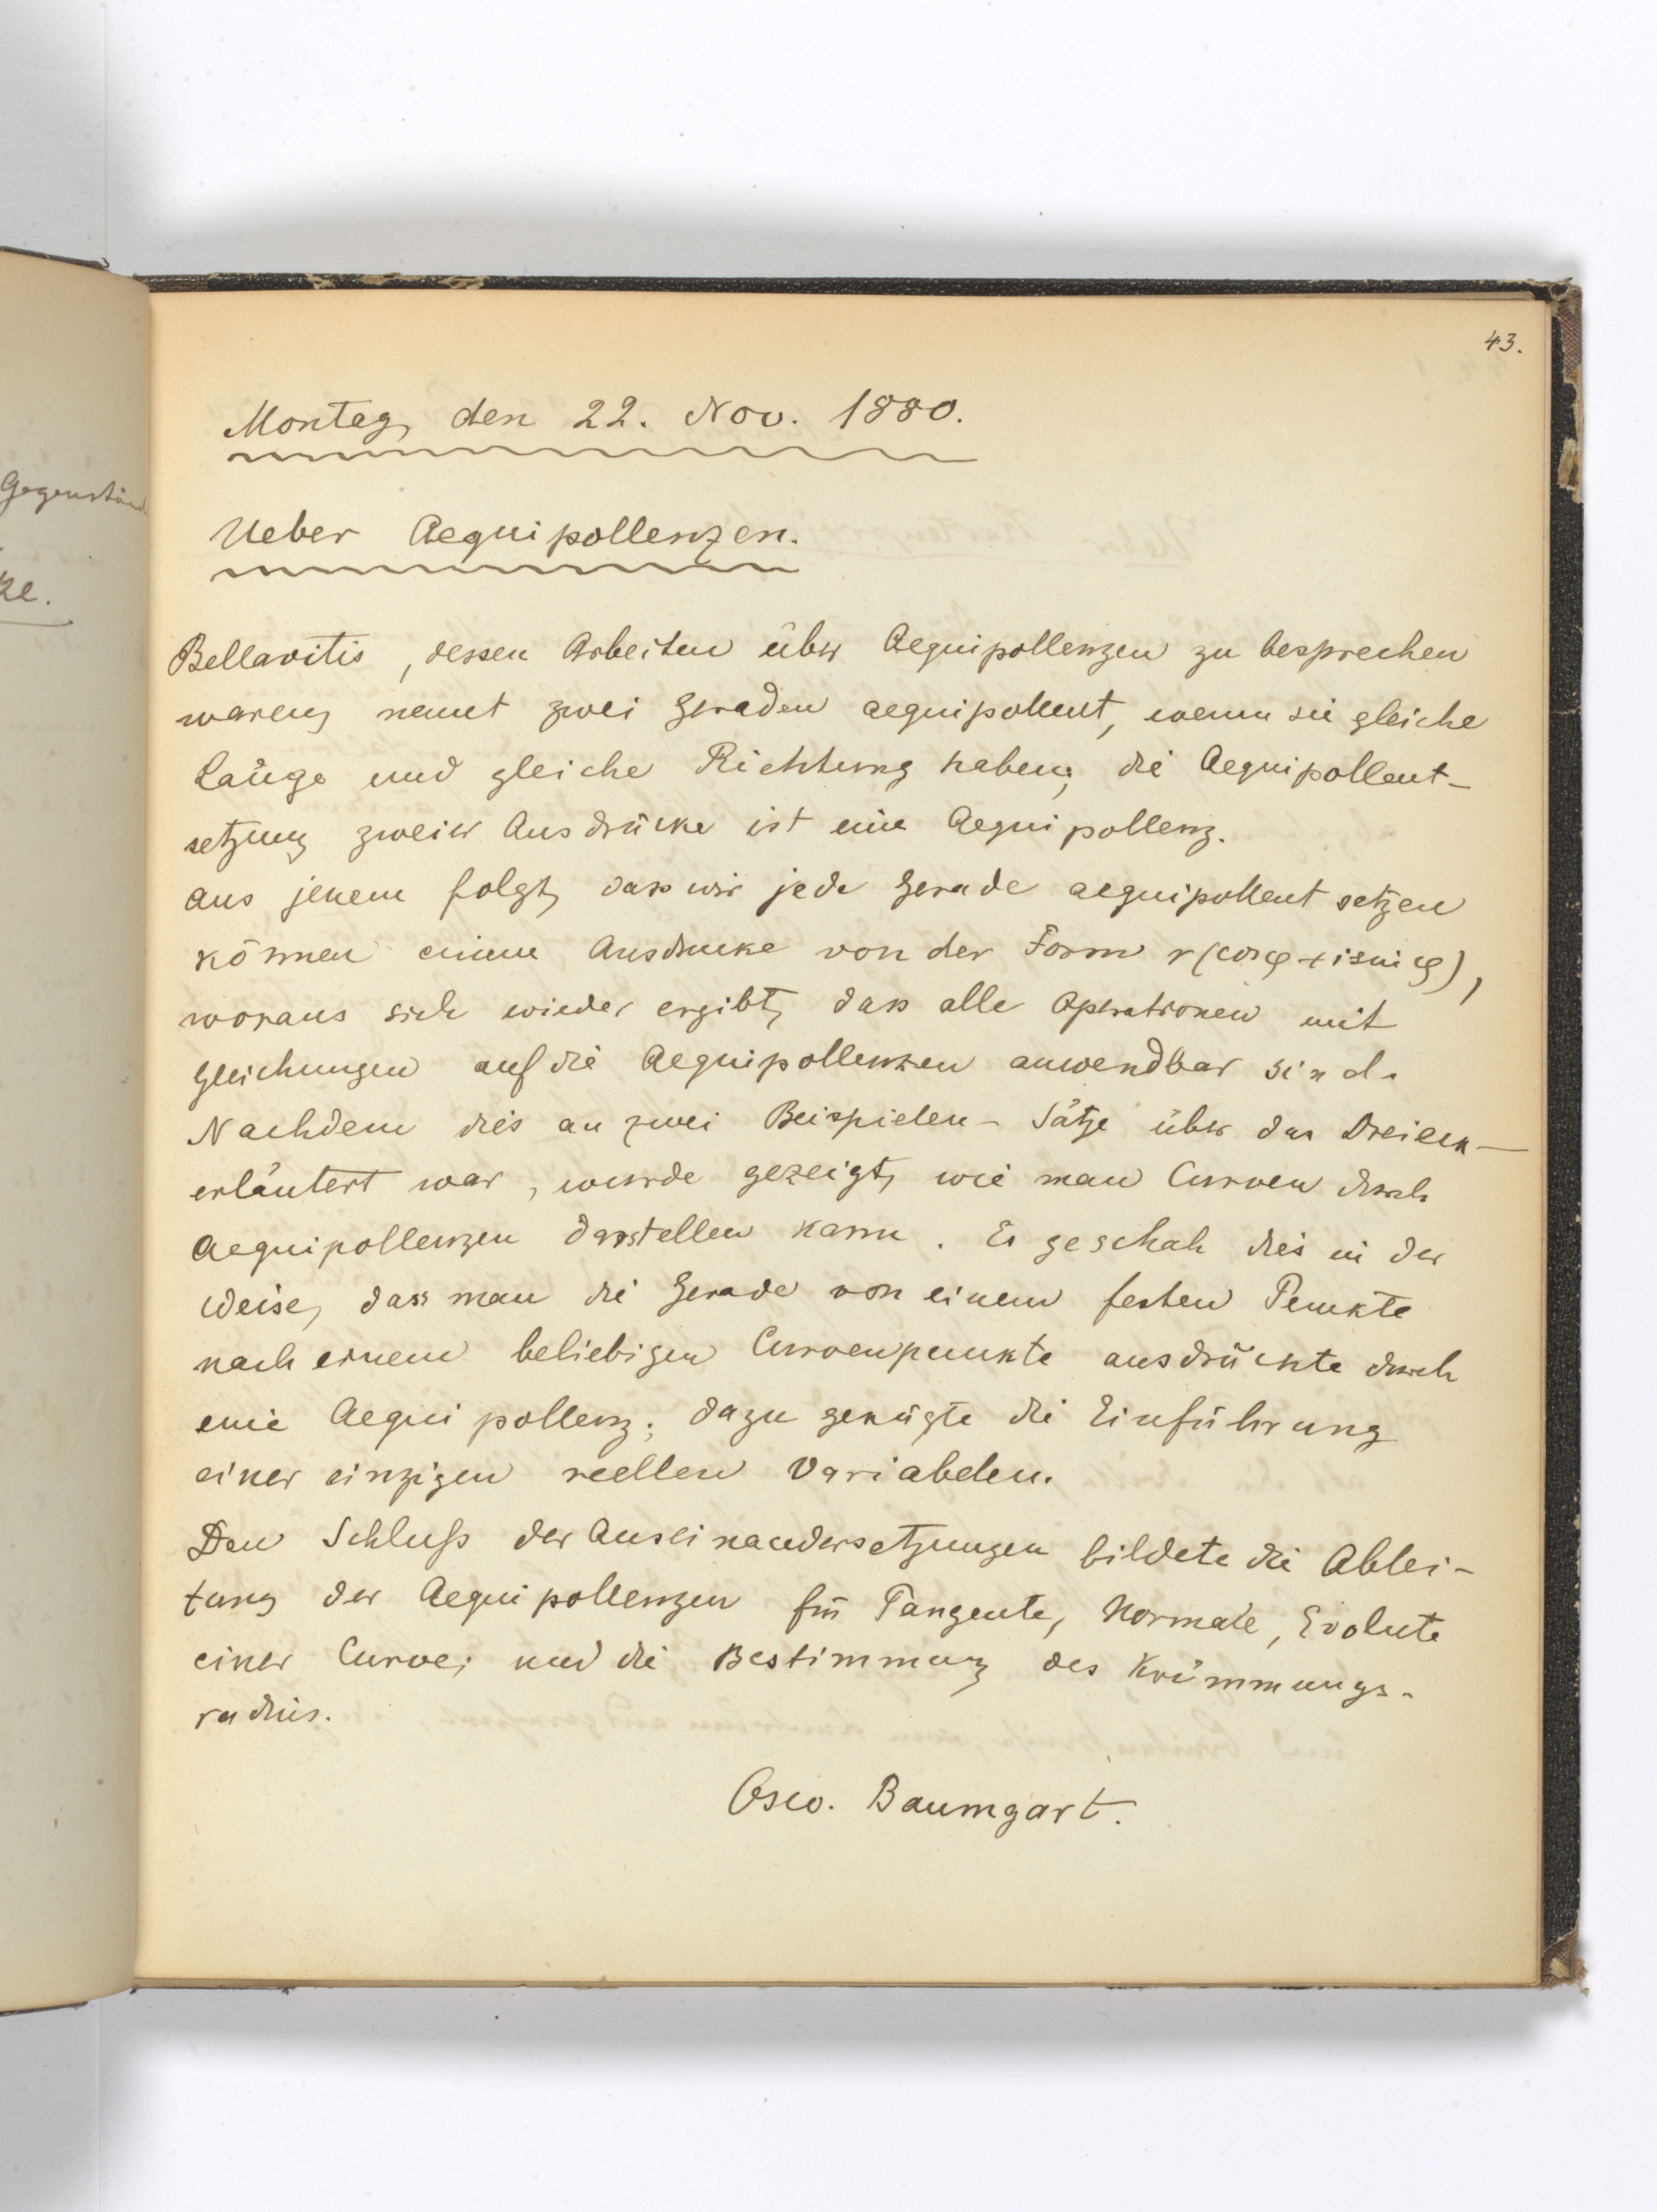 43.
Montag, den 22. Nov. 1880.
Ueber Aequipollenzen.
Gegenständ
ke.
Bellavitis, dessen Arbeiten über Aequipollenzen zu besprechen
waren, nennt zwei Geraden aequipollent, wenn sie gleiche
Länge und gleiche Richtung haben; die Aequipollent-
setzung zweier Ausdrücke ist eine Aequipollenz.
Aus jenem folgt, dass wir jede Gerade aequipollent setzen
können einem Ausdrucke von der Form r(cosφ+isinφ),
woraus sich wieder ergibt, dass alle Operationen mit
Gleichungen auf die Aequipollenzen anwendbar sind.
Nachdem dies an zwei Beispielen - Sätze über das Dreieck -
erläutert war, wurde gezeigt, wie man Curven durch
Aequipollenzen darstellen kann. Es geschah dies in der
Weise, dass man die Gerade von einem festen Punkte
nach einem beliebigen Curvenpunkte ausdrückte durch
eine Aequipollenz; dazu genügte die Einführung
einer einzigen reellen Variabelen.
Den Schluß der Auseinandersetzungen bildete die Ablei-
tung der Aequipollenzen für Tangente, Normale, Evolute
einer Curve; und die Bestimmung des Krümmungs-
radius.
Baumgart.